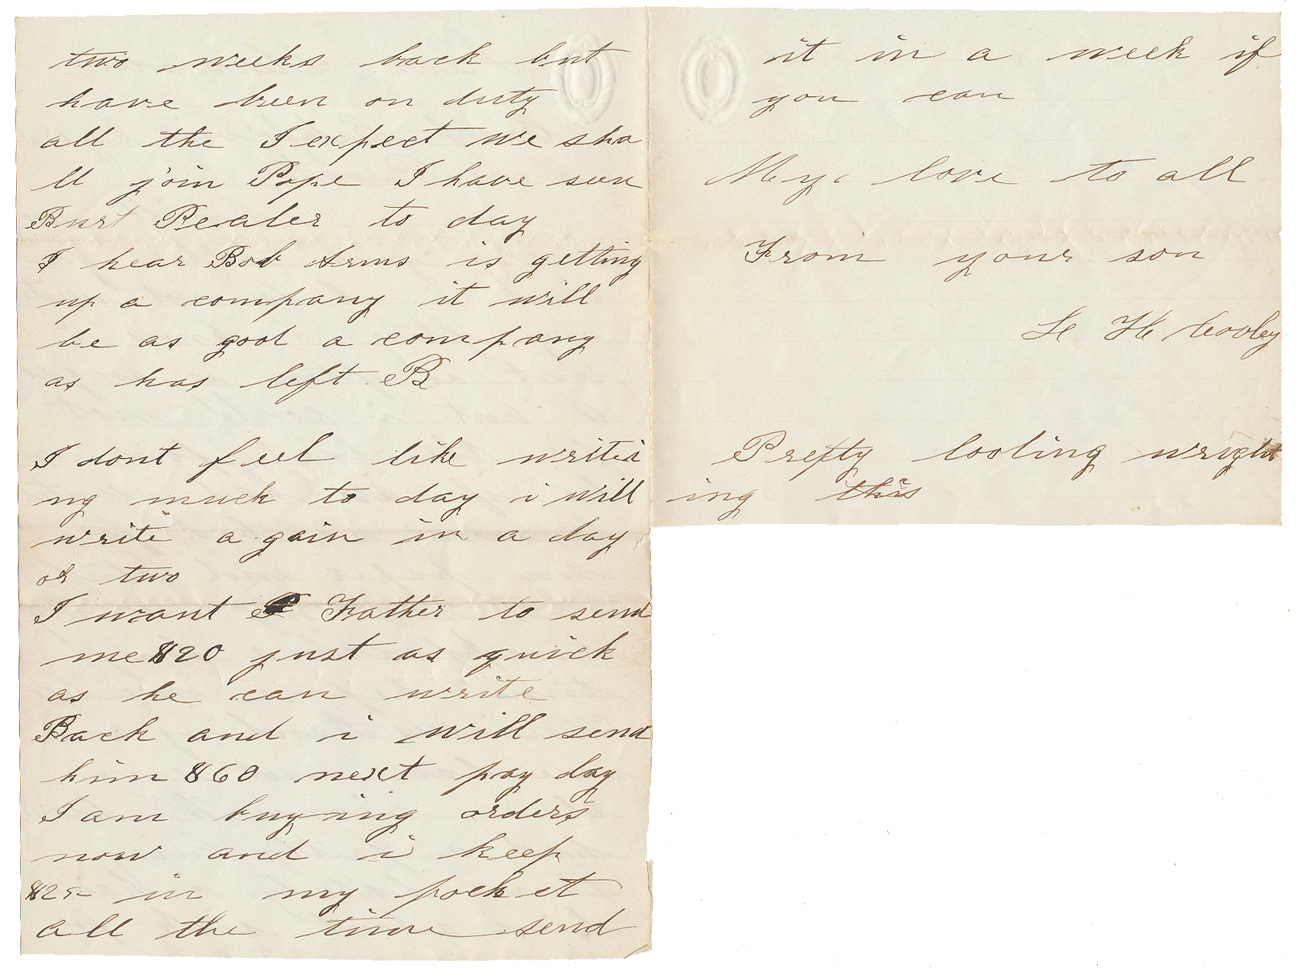 two weeks back but
have been on duty
all the I expect we sha
ll join Pope I have seen
Burt Realer to day
I hear Bob Arms is getting
up a company it will
be as good a company
as has left B
I dont feel like writei
ng much to day i will
write again in a day
or two
I want Father to send
me $20 just as quick
as he can write
Back and i will send
him $60 next pay day
I am buying orders
now and i keep
in my pocket
all the time send
it in a week if
you can
My love to all
From your son
H Cooley
Pretty looking wright
ing this